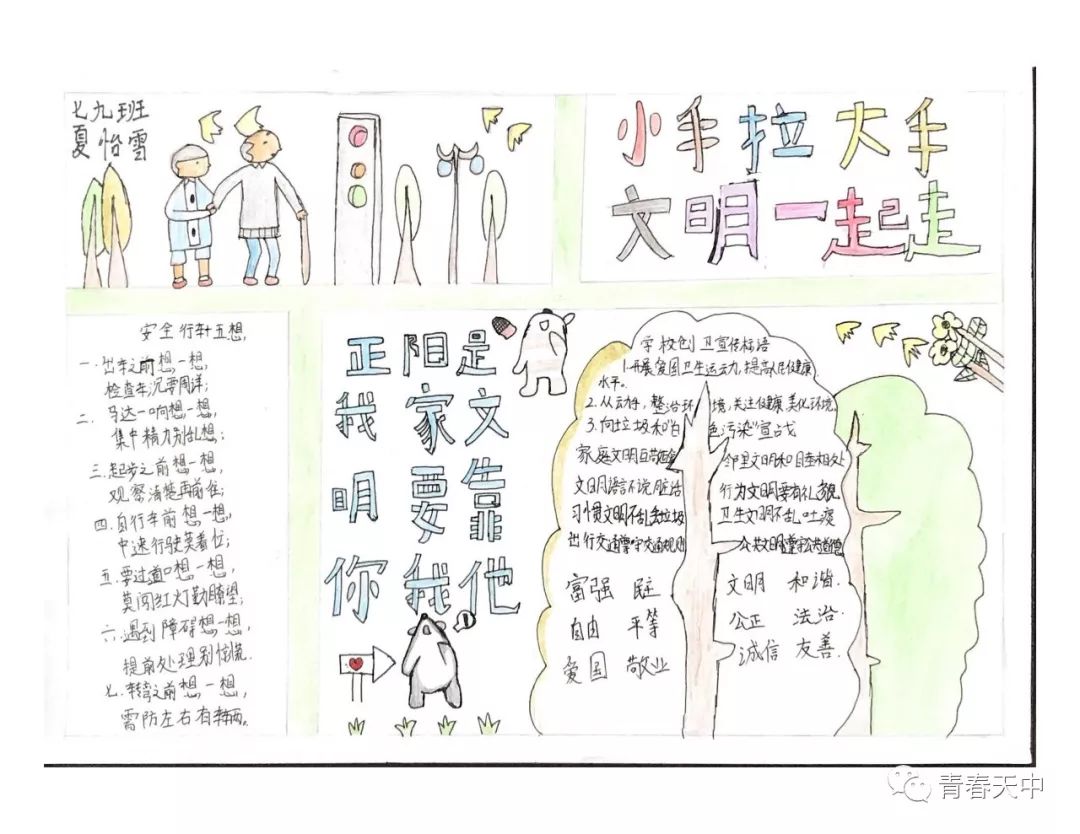 七九班
夏怡雪
小手拉大手
文明一起走
安全行车五想
一.出车之前想一想,
检查车况要周详;
二.马达一响想一想,
集中精力别乱想;
三.起步之前想一想,
观察清楚再前往;
四.自行车前想一想,
中速行驶莫着忙;
五.要过道口想一想,
莫闯红灯勤瞭望;
六.遇到障碍想一想,
提前处理别惊慌.
七.转弯之前想一想,
需防左右有车辆。
正阳是
我家文
明要靠
你我他
学校创卫宣传标语
1.开展爱国卫生运动,提高人民健康
水平。
2.从动手,整治环境,关注健康,美化环境.
3.向垃圾和"白色污染"宣战
家庭文明互敬 邻里文明和睦相处
文明语言不说脏话 行为文明要有礼貌
习惯文明不乱丢垃圾 卫生文明不乱吐痰
出行交通遵守交通规则 公共文明遵守公共道德
富强 民主 文明 和谐.
自由 平等 公正 法治.
爱国 敬业 诚信 友善.
青春天中